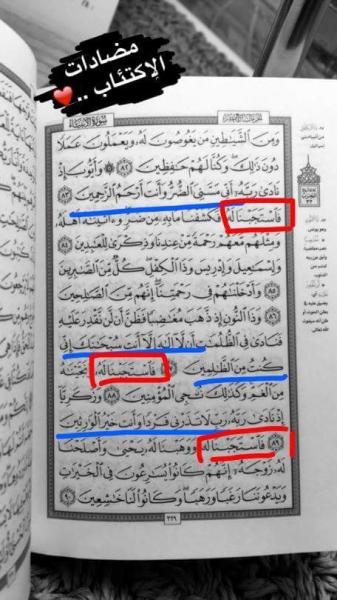 مضادات
الإكتئاب ..
سُورَةُ الأَنبِيَاءِ
وَمِنَ الشَّيَاطِينِ مَن يَغُوصُونَ لَهُ وَيَعْمَلُونَ عَمَلًا
دُونَ ذَٰلِكَ وَكُنَّا لَهُمْ حَافِظِينَ ٨٢ وَأَيُّوبَ إِذْ
نَادَىٰ رَبَّهُ أَنِّي مَسَّنِيَ الضُّرُّ وَأَنتَ أَرْحَمُ الرَّاحِمِينَ ٨٣
فَاسْتَجَبْنَا لَهُ فَكَشَفْنَا مَا بِهِ مِن ضُرٍّ وَآتَيْنَاهُ أَهْلَهُ
وَمِثْلَهُم مَّعَهُمْ رَحْمَةً مِّنْ عِندِنَا وَذِكْرَىٰ لِلْعَابِدِينَ ٨٤
وَإِسْمَاعِيلَ وَإِدْرِيسَ وَذَا الْكِفْلِ كُلٌّ مِّنَ الصَّابِرِينَ
٨٥ وَأَدْخَلْنَاهُمْ فِي رَحْمَتِنَا إِنَّهُم مِّنَ الصَّالِحِينَ
٨٦ وَذَا النُّونِ إِذ ذَّهَبَ مُغَاضِبًا فَظَنَّ أَن لَّن نَّقْدِرَ عَلَيْهِ
فَنَادَىٰ فِي الظُّلُمَاتِ أَن لَّا إِلَٰهَ إِلَّا أَنتَ سُبْحَانَكَ إِنِّي
كُنتُ مِنَ الظَّالِمِينَ ٨٧ فَاسْتَجَبْنَا لَهُ وَنَجَّيْنَاهُ
مِنَ الْغَمِّ وَكَذَٰلِكَ نُنجِي الْمُؤْمِنِينَ ٨٨ وَزَكَرِيَّا
إِذْ نَادَىٰ رَبَّهُ رَبِّ لَا تَذَرْنِي فَرْدًا وَأَنتَ خَيْرُ الْوَارِثِينَ
٨٩ فَاسْتَجَبْنَا لَهُ وَوَهَبْنَا لَهُ يَحْيَىٰ وَأَصْلَحْنَا
لَهُ زَوْجَهُ إِنَّهُمْ كَانُوا يُسَارِعُونَ فِي الْخَيْرَاتِ
وَيَدْعُونَنَا رَغَبًا وَرَهَبًا وَكَانُوا لَنَا خَاشِعِينَ ٩٠
٣٢٩